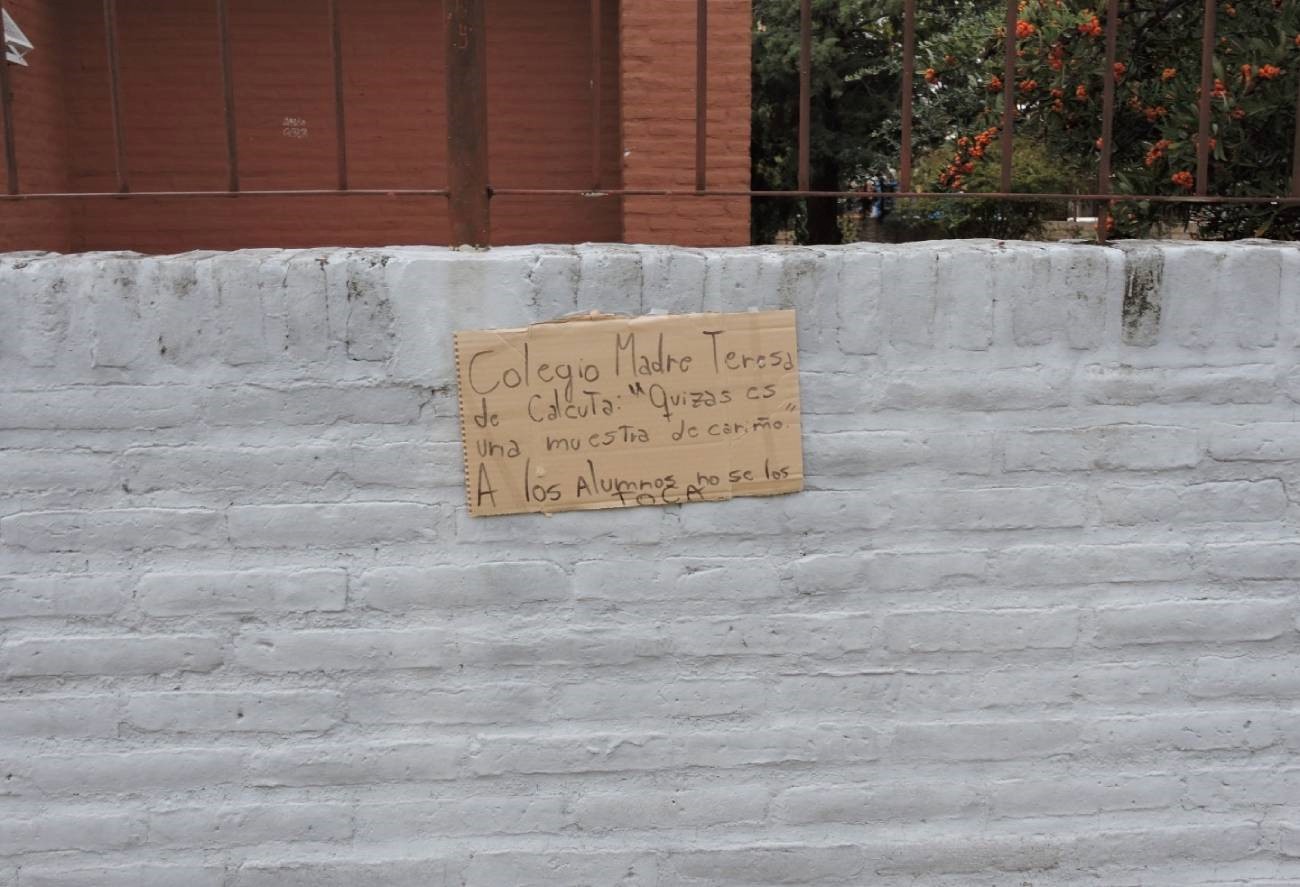 Colegio Madre Teresa
de Calcuta: "Quizas es
una muestra de cariño."
A los Alumnos no se los
TOCA